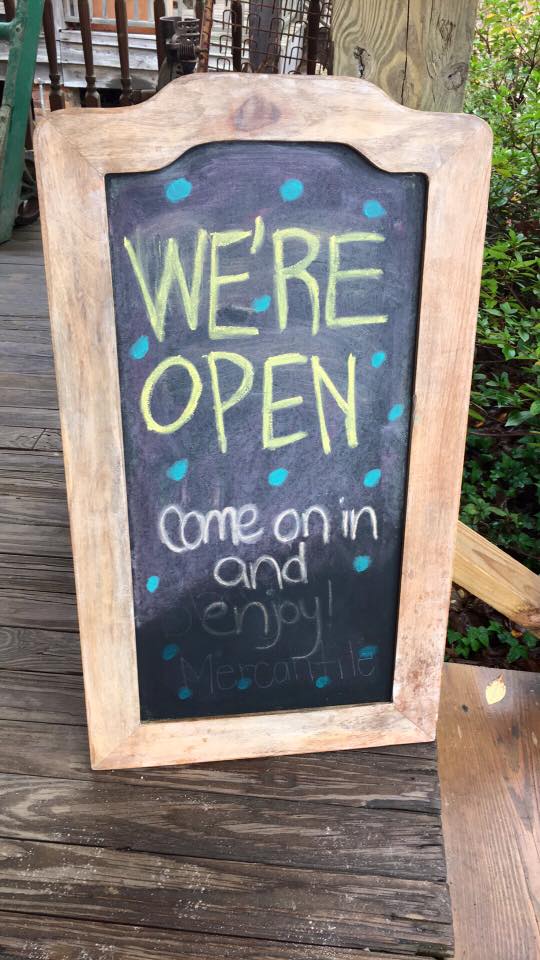 WE'RE
OPEN
Come on in
and
enjoy!
Mercantile